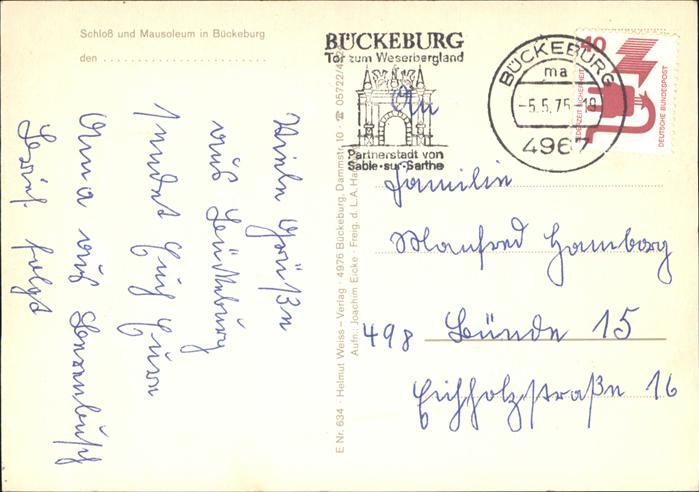 Schloß und Mausoleum in Bückeburg
den
Viele Grüße
aus Bückeburg
sendet Euch Eure
Oma aus
Brief folgt
E Nr. 634 · Helmut Weiss – Verlag · 4976 Bückeburg, Dammstr. 10 · ☎ 05722/4
Aufn.: Joachim Eicke · Freig. d. L.A. Ha
BÜCKEBURG
Tor zum Weserbergland
Partnerstadt von
Sablé-sur-Sarthe
BÜCKEBURG
ma
-5.5.75-18
4967
40
JEDERZEIT SICHERHEIT
DEUTSCHE BUNDESPOST
An
Familie
Manfred Hamborg
498 Bünde 15
Eichholzstraße 16